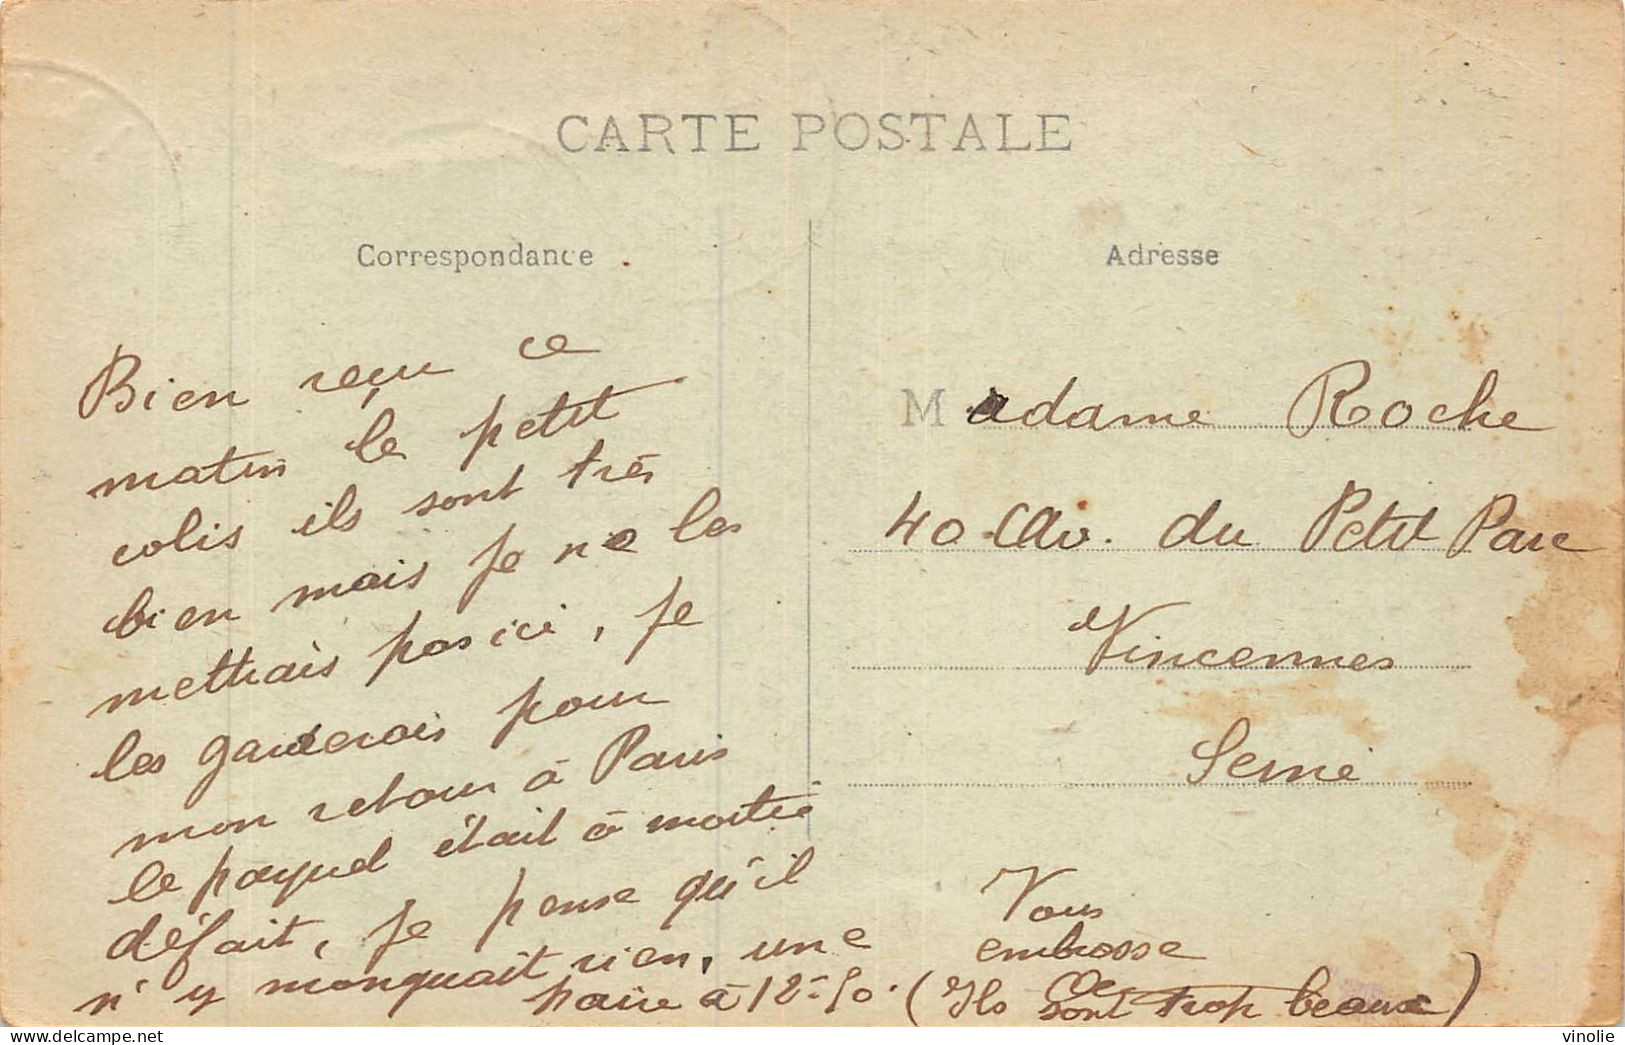 CARTE POSTALE
Correspondance
Bien reçu ce
matin le petit
colis ils sont très
bien mais je ne les
mettrais pas ici, je
les garderais pour
mon retour à Paris
le paquet était à moitié
défait, je pense qu'il
n'y manquait rien, une
paire à 12-50. (Ils sont trop beaux)
Adresse
Madame Roche
40 Av. du Petit Parc
Vincennes
Seine
Vous
embrasse
vinolie